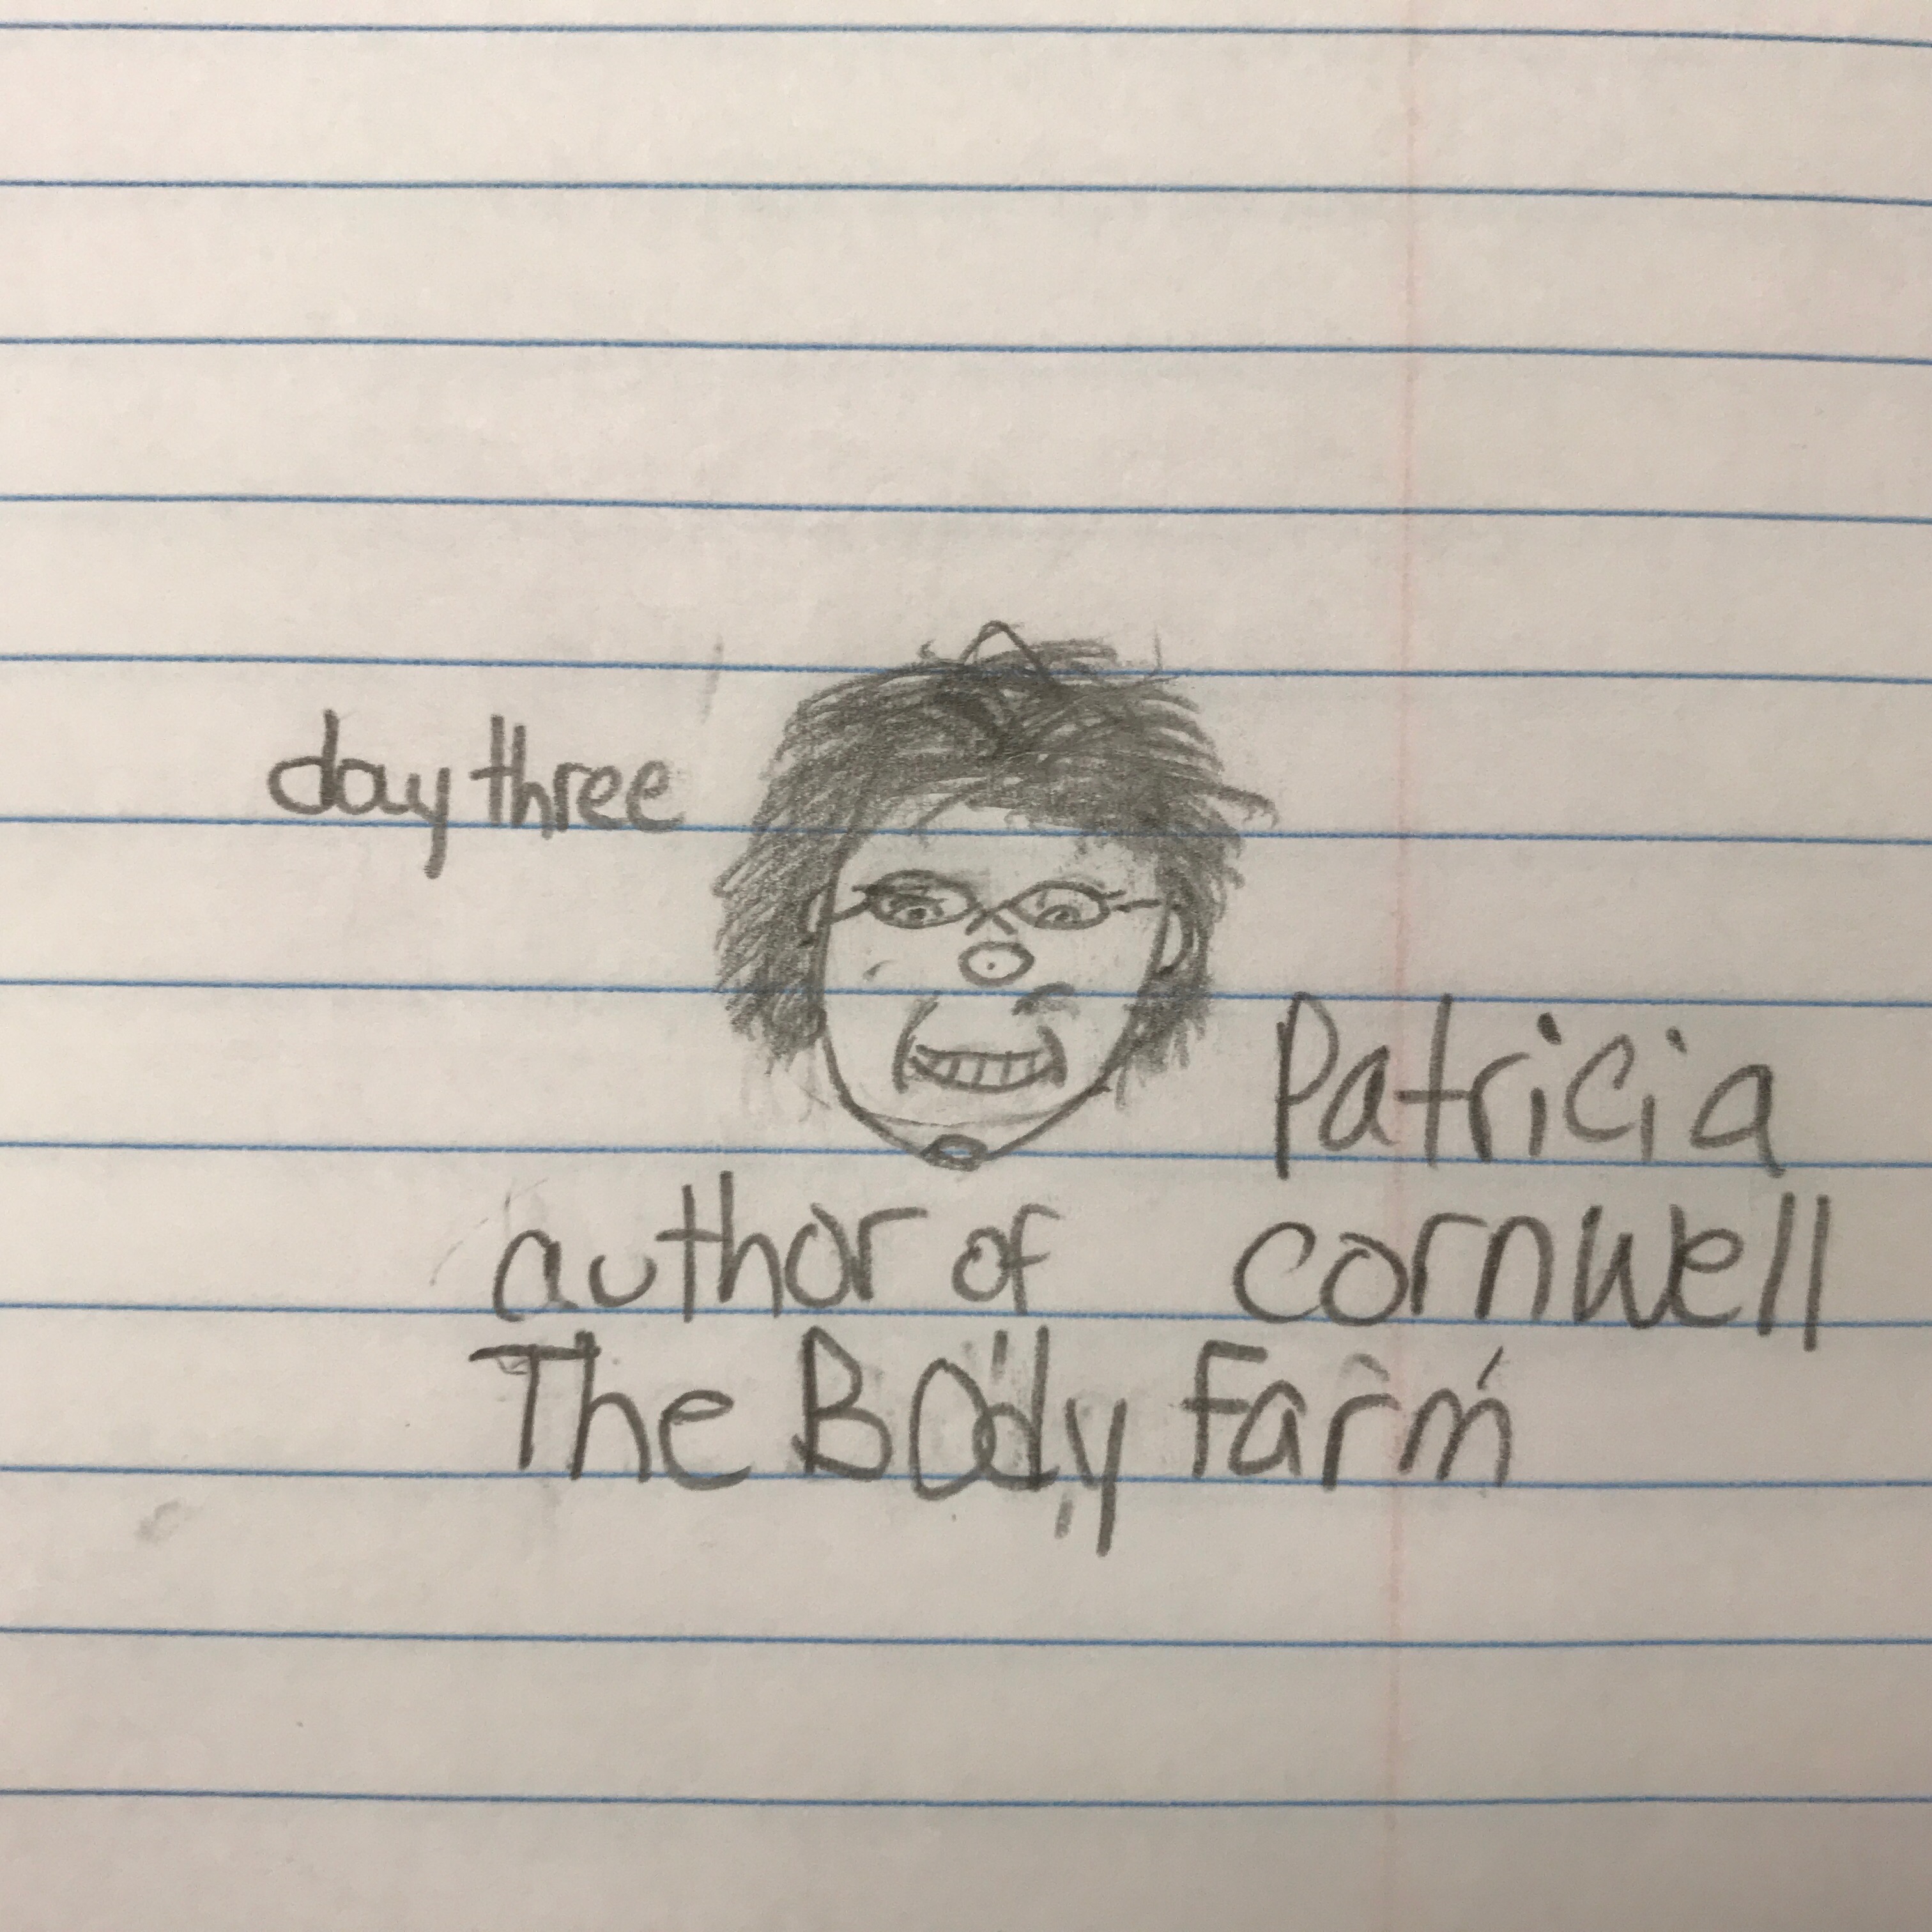 day three
Patricia
cornwell
author of
The Body Farm